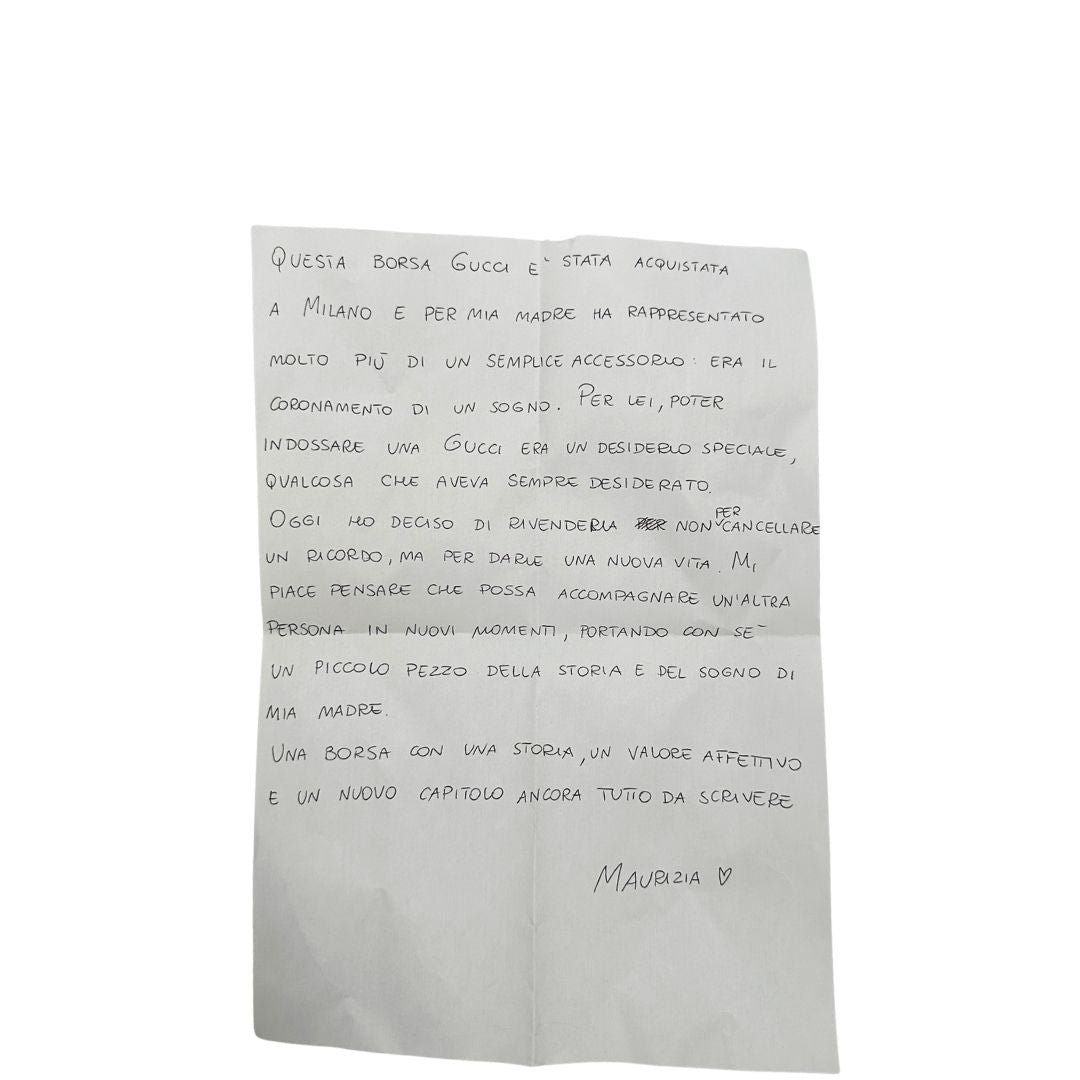 QUESTA BORSA GUCCI E` STATA ACQUISTATA
A MILANO E PER MIA MADRE HA RAPPRESENTATO
MOLTO PIÙ DI UN SEMPLICE ACCESSORIO: ERA IL
CORONAMENTO DI UN SOGNO. PER LEI, POTER
INDOSSARE UNA GUCCI ERA UN DESIDERIO SPECIALE,
QUALCOSA CHE AVEVA SEMPRE DESIDERATO.
OGGI HO DECISO DI RIVENDERLA NON PER CANCELLARE
UN RICORDO, MA PER DARLE UNA NUOVA VITA. MI
PIACE PENSARE CHE POSSA ACCOMPAGNARE UN'ALTRA
PERSONA IN NUOVI MOMENTI, PORTANDO CON SE´
UN PICCOLO PEZZO DELLA STORIA E DEL SOGNO DI
MIA MADRE.
UNA BORSA CON UNA STORIA, UN VALORE AFFETTIVO
E UN NUOVO CAPITOLO ANCORA TUTTO DA SCRIVERE
MAURIZIA ♡